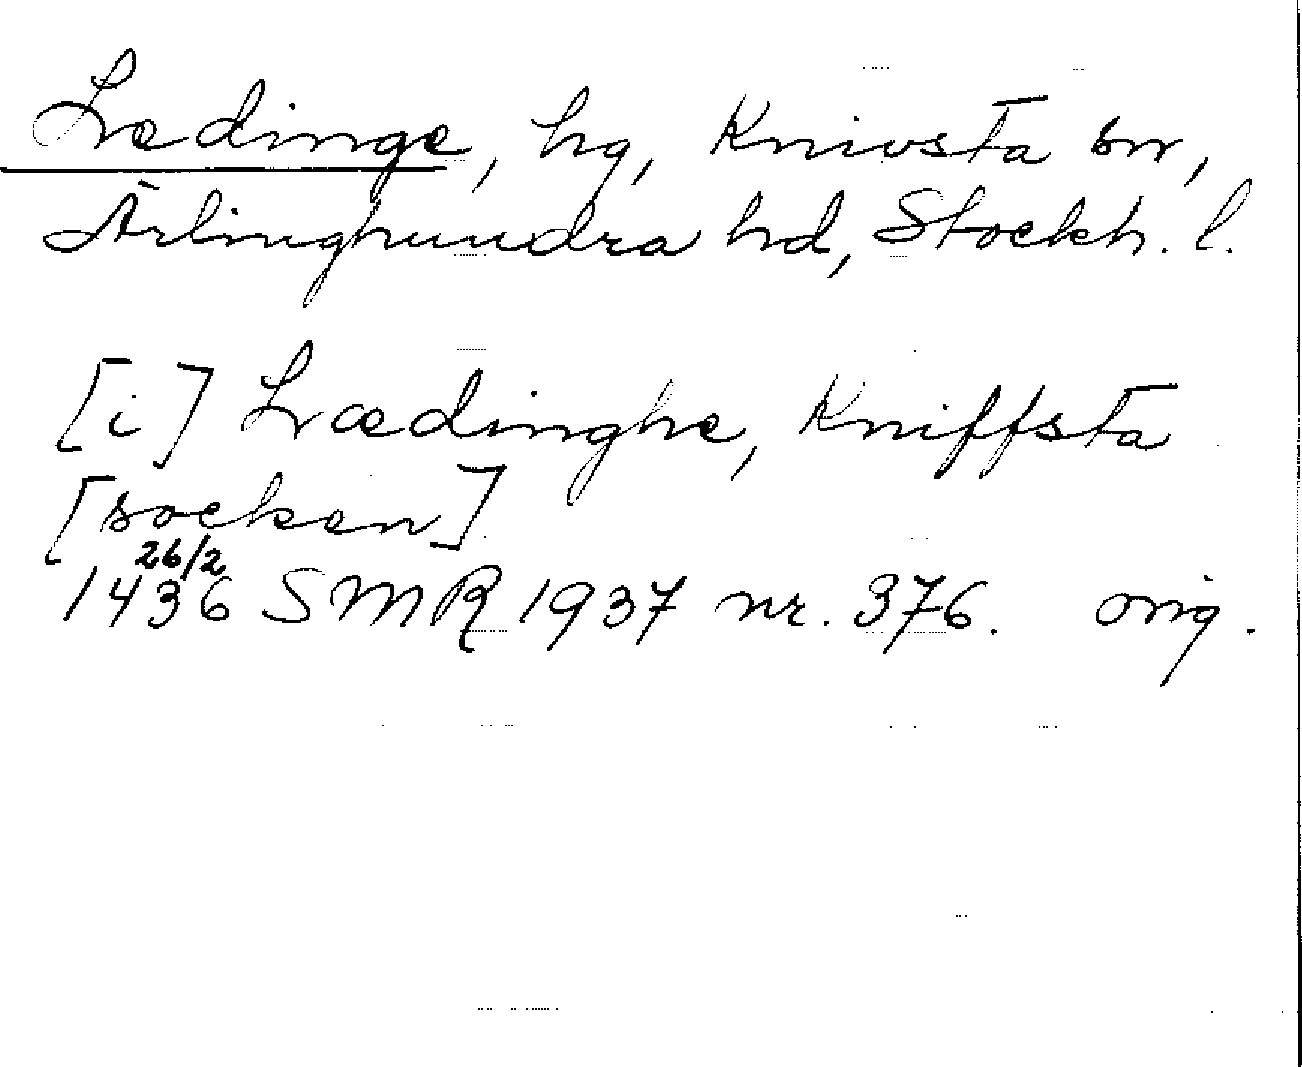 Lædinge, hg, Knivsta sn,
Ärlinghundra hd, Stockh. l.
[i] Lædinghe, Kniffsta
[socken]
26/2
1436 SMR 1937 nr. 376. orig.